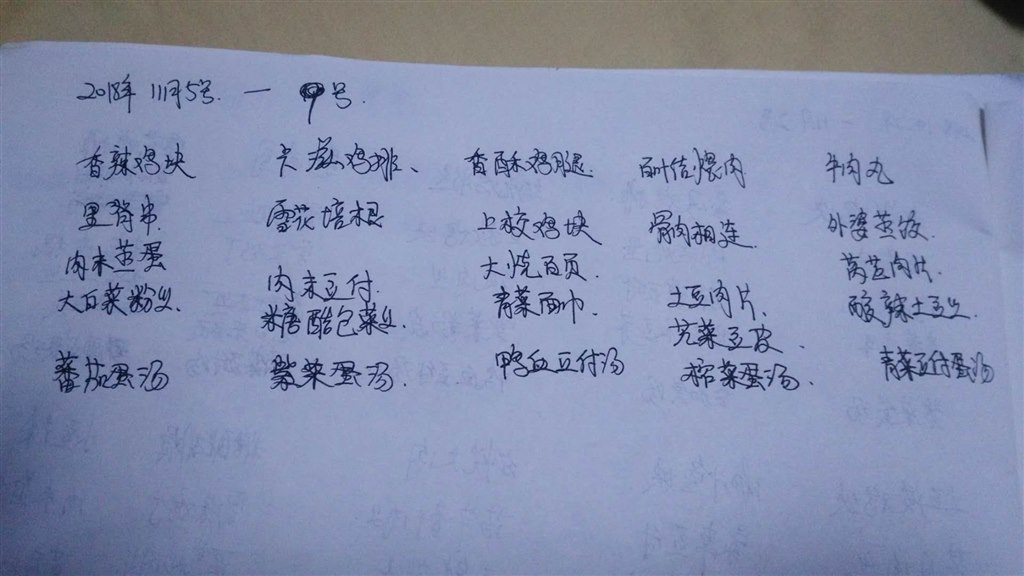 2018年 11月5号 — 9号.
香辣鸡块 卡兹鸡排、 香酥鸡腿 百叶结煨肉 牛肉丸
里脊串. 雪花培根 上校鸡块 骨肉相连 外婆蒸饺.
肉末蒸蛋 肉末豆付. 大烧百页. 土豆肉片. 莴苣肉片.
大白菜粉丝 糖醋包菜丝. 青菜面巾. 芹菜豆皮. 酸辣土豆丝.
蕃茄蛋汤 紫菜蛋汤. 鸭血豆付汤 榨菜蛋汤. 青菜豆付蛋汤